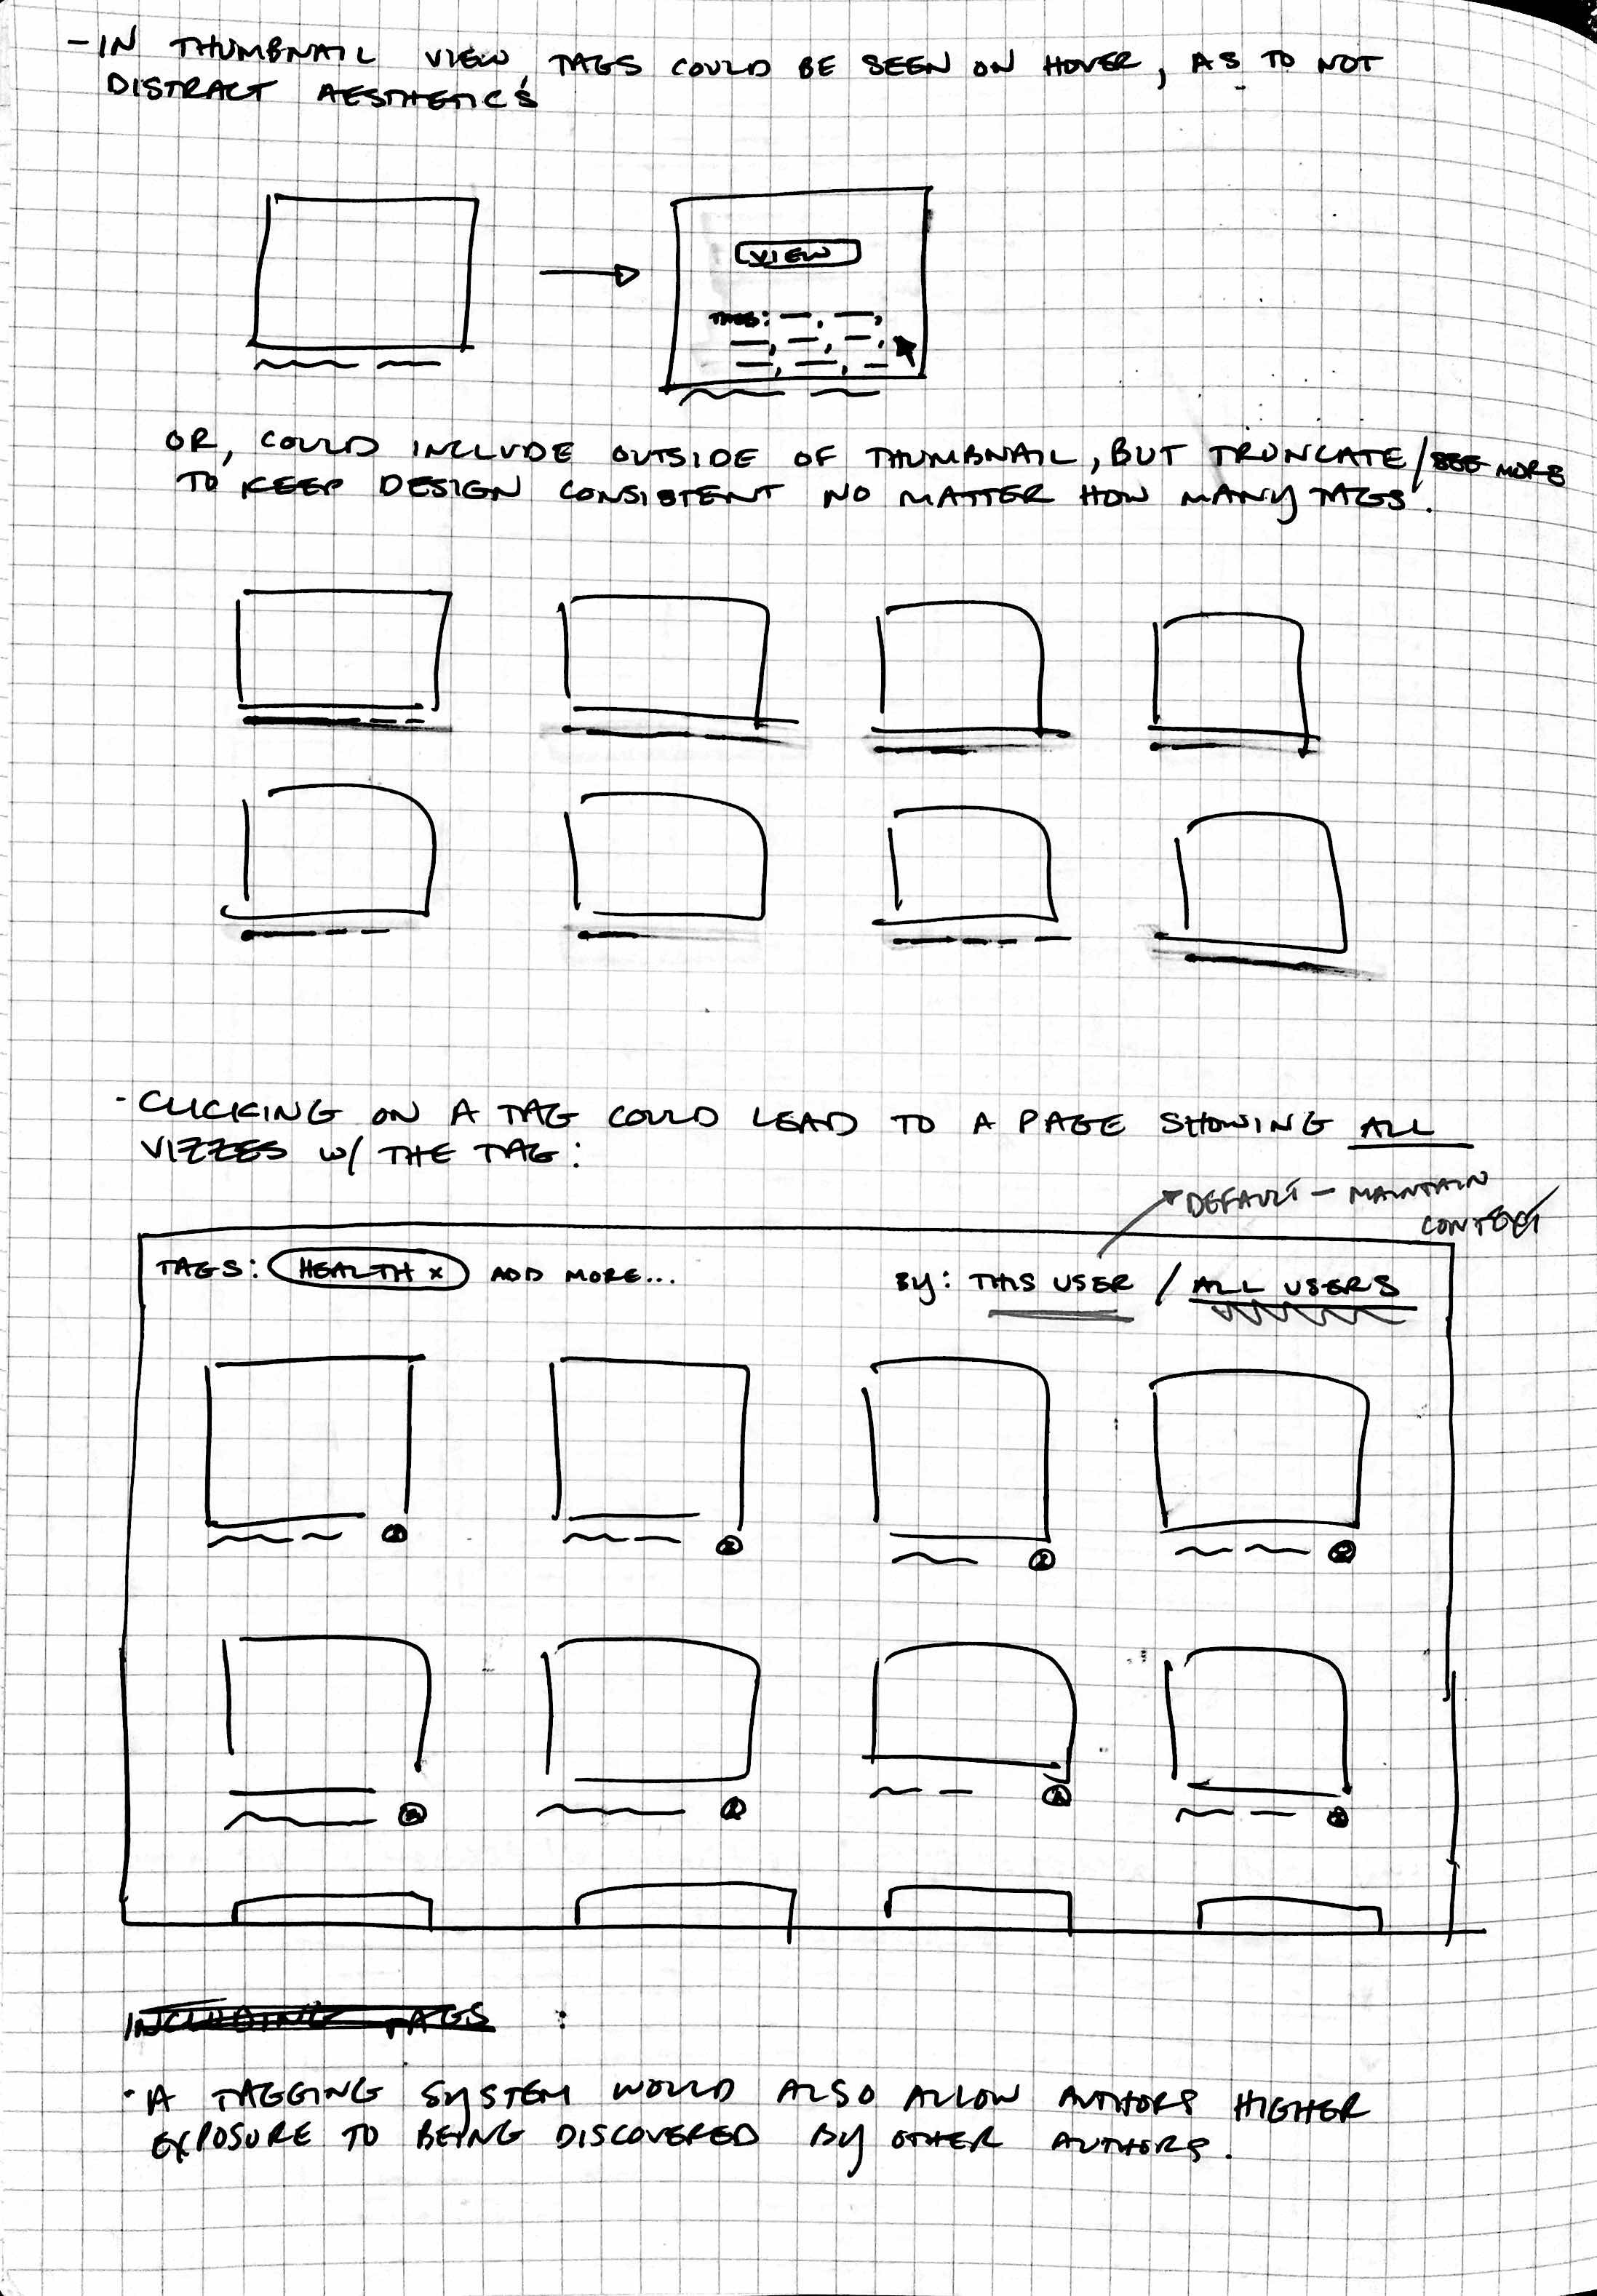 - IN THUMBNAIL VIEW, TAGS COULD BE SEEN ON HOVER, AS TO NOT
DISTRACT AESTHETICS
VIEW
TAGS:
OR, COULD INCLUDE OUTSIDE OF THUMBNAIL, BUT TRUNCATE/SEE MORE
TO KEEP DESIGN CONSISTENT NO MATTER HOW MANY TAGS.
· CLICKING ON A TAG COULD LEAD TO A PAGE SHOWING ALL
VIZZES W/ THE TAG:
DEFAULT - MAINTAIN
CONTEXT
TAGS: HEALTH x ADD MORE... BY: THIS USER / ALL USERS
INCLUDING TAGS :
· A TAGGING SYSTEM WOULD ALSO ALLOW AUTHORS HIGHER
EXPOSURE TO BEING DISCOVERED BY OTHER AUTHORS.